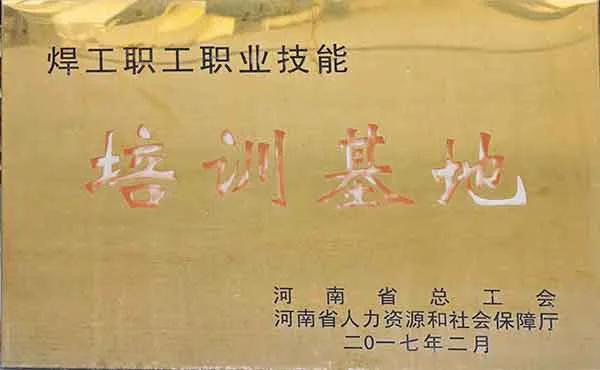 焊工职工职业技能
培训基地
河南省总工会
河南省人力资源和社会保障厅
二〇一七年二月